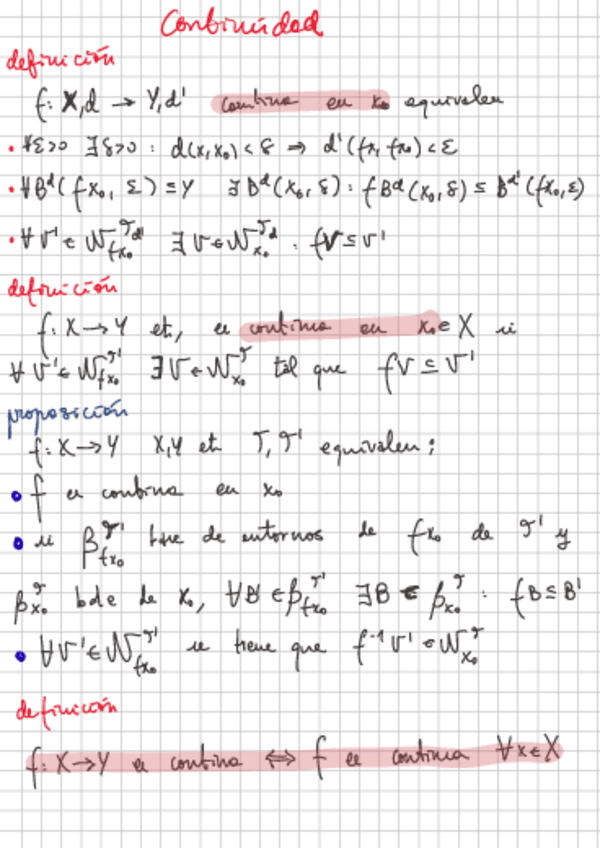 Continuidad
definición
f: X,d → Y,d' continua en x₀ equivalen
• ∀ε>0 ∃δ>0 : d(x,x₀)<δ ⇒ d'(fx, fx₀)<ε
• ∀B^d'(fx₀, ε) ⊆ Y ∃B^d(x₀,δ) : fB^d(x₀,δ) ⊆ B^d'(fx₀,ε)
• ∀V' ∈ N_{fx₀}^{T_d'} ∃V ∈ N_{x₀}^{T_d} : fV ⊆ V'
definición
f: X → Y et, es continua en x₀ ∈ X si
∀ V' ∈ N_{fx₀}^{T'} ∃V ∈ N_{x₀}^{T} tal que fV ⊆ V'
proposición
f: X → Y X,Y et T,T' equivalen:
• f es continua en x₀
• si β_{fx₀}^{T'} base de entornos de fx₀ de T' y
β_{x₀}^{T} base de x₀, ∀B' ∈ β_{fx₀}^{T'} ∃B ∈ β_{x₀}^{T} : fB ⊆ B'
• ∀V' ∈ N_{fx₀}^{T'} se tiene que f⁻¹V' ∈ N_{x₀}^{T}
definición
f: X → Y es continua ⟺ f es continua ∀x∈X